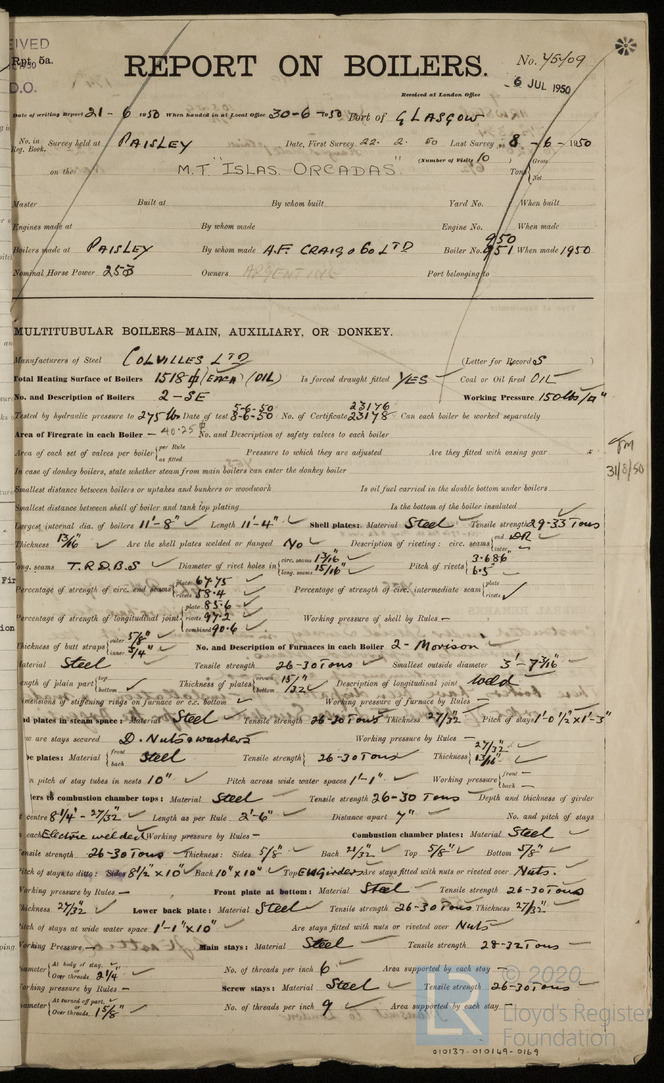 EIVED
Rpt. 5a.
D.O.
REPORT ON BOILERS.
No. 45409
6 JUL 1950
Received at London Office
Date of writing Report 21-6-1950 When handed in at Local Office 30-6-1950 Port of GLASGOW
No. in Reg. Book. Survey held at PAISLEY Date, First Survey 22. 2. 50 Last Survey 8-6-1950
on the M.T "ISLAS ORCADAS" (Number of Visits 10) Tons Gross Net
Master Built at By whom built Yard No. When built
Engines made at By whom made Engine No. When made
Boilers made at PAISLEY By whom made A.F. CRAIG & Co LTD Boiler No. 950 951 When made 1950
Nominal Horse Power 253 Owners ARGENTINE Port belonging to
MULTITUBULAR BOILERS—MAIN, AUXILIARY, OR DONKEY.
Manufacturers of Steel COLVILLES LTD (Letter for Record S)
Total Heating Surface of Boilers 1518 (EACH) (OIL) Is forced draught fitted YES Coal or Oil fired OIL
No. and Description of Boilers 2-SE Working Pressure 150 lbs/□"
Tested by hydraulic pressure to 275 lb Date of test 5-6-50 8-6-50 No. of Certificate 23176 23178 Can each boiler be worked separately
Area of Firegrate in each Boiler — 40.25 No. and Description of safety valves to each boiler
Area of each set of valves per boiler per Rule as fitted Pressure to which they are adjusted Are they fitted with easing gear
31/8/50
In case of donkey boilers, state whether steam from main boilers can enter the donkey boiler
Smallest distance between boilers or uptakes and bunkers or woodwork Is oil fuel carried in the double bottom under boilers
Smallest distance between shell of boiler and tank top plating Is the bottom of the boiler insulated
Largest internal dia. of boilers 11'-8" Length 11'-4" Shell plates: Material Steel Tensile strength 29-33 Tons
Thickness 13/16" Are the shell plates welded or flanged No Description of riveting: circ. seams end DR inter.
long. seams T.R.D.B.S Diameter of rivet holes in circ. seams 13/16" long. seams 15/16" Pitch of rivets 3.686 6.5"
Percentage of strength of circ. end seams plate 67.75 rivets 58.4 Percentage of strength of circ. intermediate seam plate rivets
Percentage of strength of longitudinal joint plate 85.6 rivets 97.2 combined 90.6 Working pressure of shell by Rules —
Thickness of butt straps outer 5/8" inner 3/4" No. and Description of Furnaces in each Boiler 2-Morison
Material Steel Tensile strength 26-30 Tons Smallest outside diameter 3'-7 3/16"
Length of plain part top bottom Thickness of plates crown bottom 15/32" Description of longitudinal joint Weld
Dimensions of stiffening rings on furnace or c.c. bottom Working pressure of furnace by Rules —
End plates in steam space: Material Steel Tensile strength 26-30 Tons Thickness 27/32" Pitch of stays 1'-0½" x 1'-3"
How are stays secured D. Nuts & washers Working pressure by Rules —
Tube plates: Material front back Steel Tensile strength 26-30 Tons Thickness 27/32" 13/16"
Mean pitch of stay tubes in nests 10" Pitch across wide water spaces 1'-1" Working pressure front back
Girders to combustion chamber tops: Material Steel Tensile strength 26-30 Tons Depth and thickness of girder
at centre 8¼" - 27/32" Length as per Rule 2'-6" Distance apart 7" No. and pitch of stays
in each Electric welded Working pressure by Rules — Combustion chamber plates: Material Steel
Tensile strength 26-30 Tons Thickness: Sides 5/8" Back 21/32" Top 5/8" Bottom 5/8"
Pitch of stays to ditto: Sides 8½" x 10" Back 10" x 10" Top EW Girders Are stays fitted with nuts or riveted over Nuts.
Working pressure by Rules — Front plate at bottom: Material Steel Tensile strength 26-30 Tons
Thickness 27/32" Lower back plate: Material Steel Tensile strength 26-30 Tons Thickness 27/32"
Pitch of stays at wide water space 1'-1" x 10" Are stays fitted with nuts or riveted over Nuts
Working Pressure — Main stays: Material Steel Tensile strength 28-32 Tons
Diameter At body of stay, or Over threads 2¼" No. of threads per inch 6 Area supported by each stay
Working pressure by Rules — Screw stays: Material Steel Tensile strength 26-30 Tons
Diameter At turned off part, or Over threads 1 5/8" No. of threads per inch 9 Area supported by each stay —
© 2020
LR Lloyd's Register Foundation
010137-010149-0169